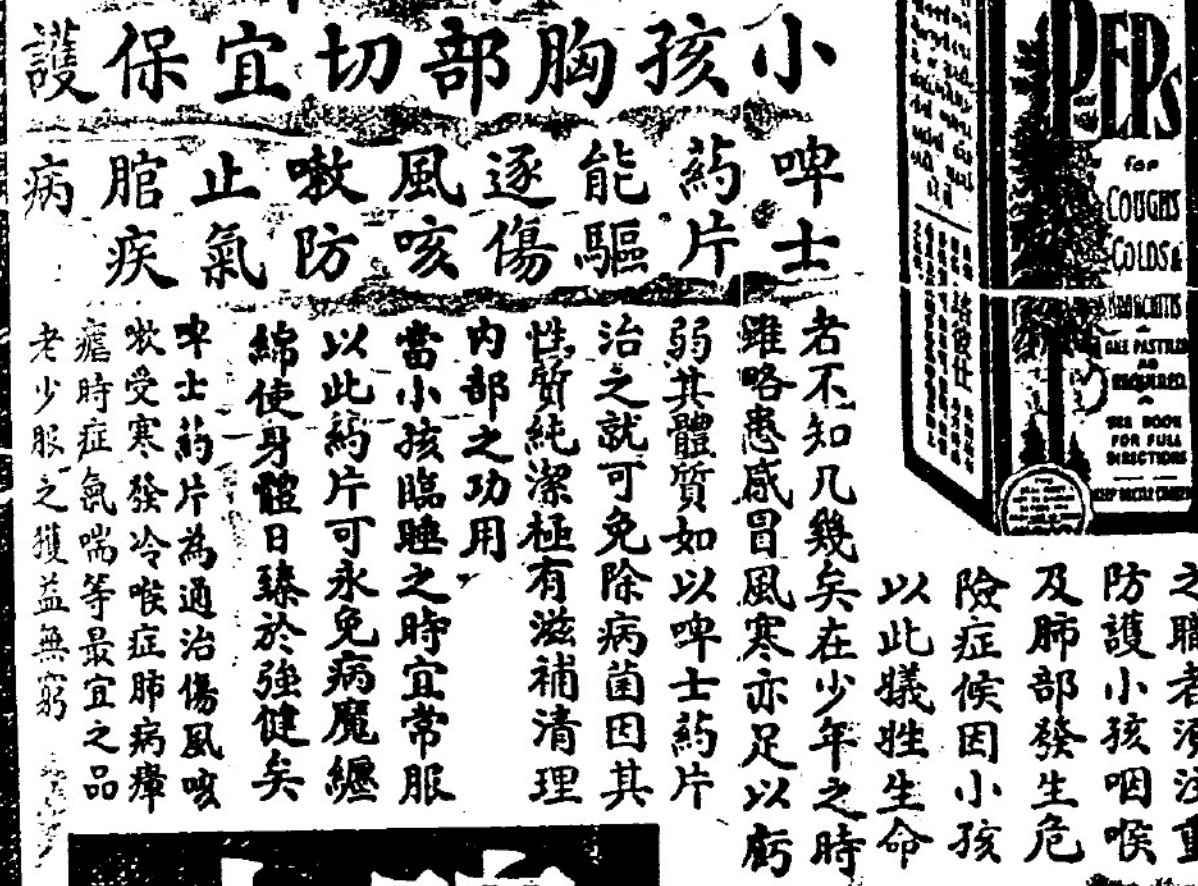 小孩胸部切宜保護
啤士葯片能驅逐傷風咳嗽防止氣膶疾病
之職者須注重
防護小孩咽喉
及肺部發生危
險症候因小孩
以此犧牲生命
者不知几幾矣在少年之時
雖略患感冒風寒亦足以虧
弱其體質如以啤士葯片
治之就可免除病菌因其
性質純潔極有滋補清理
內部之功用
當小孩臨睡之時宜常服
以此葯片可永免病魔纏
綿使身體日臻於強健矣
啤士葯片為通治傷風咳
嗽受寒發冷喉症肺病瘴
瘧時症氣喘等最宜之品
老少服之獲益無窮
PEPS
for
COUGHS
COLDS &
BRONCHITIS
ONE PASTILLE
AS
REQUIRED
SEE BOOK
FOR FULL
DIRECTIONS